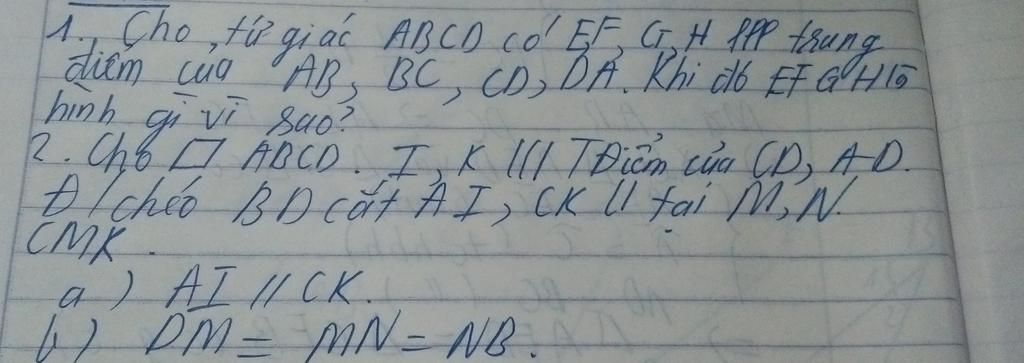 1. Cho tứ giác ABCD có EF, G, H lll trung
điểm của AB, BC, CD, DA. Khi đó EFGH là
hình gì vì sao?
2. Cho ▱ ABCD. I, K lll Tđiểm của CD, AD.
Đ/chéo BD cắt AI, CK ll tại M, N.
CMR.
a) AI // CK.
b) DM = MN = NB.